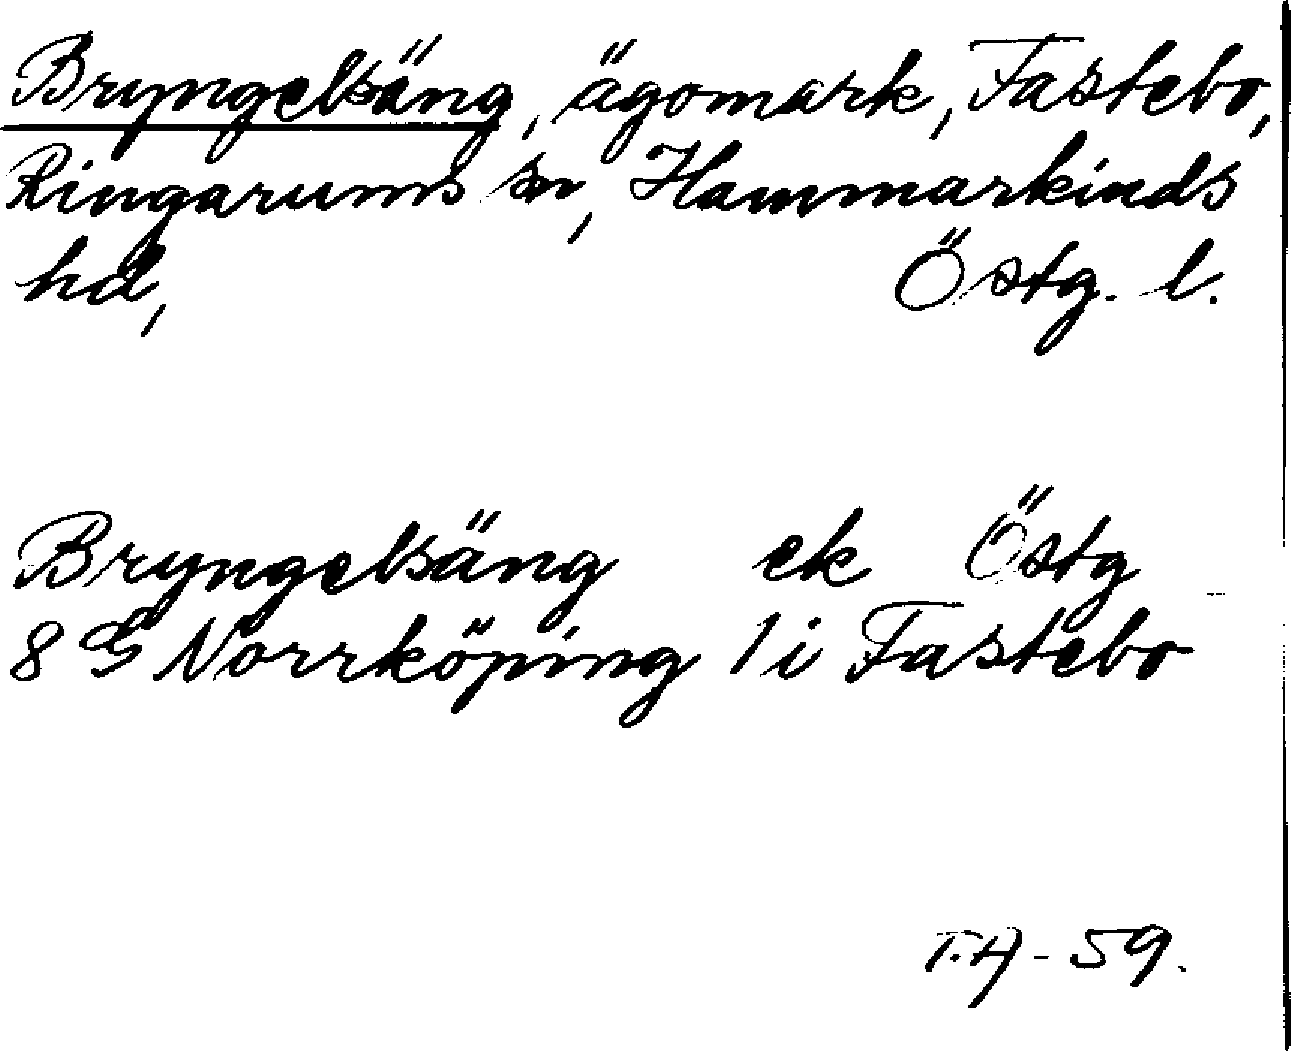 Bryngelsäng, ägomark, Fastebo,
Ringarums sn, Hammarkinds
hd, Östg. l.
Bryngelsäng ek Östg
8 G Norrköping 1 i Fastebo
T.A - 59.